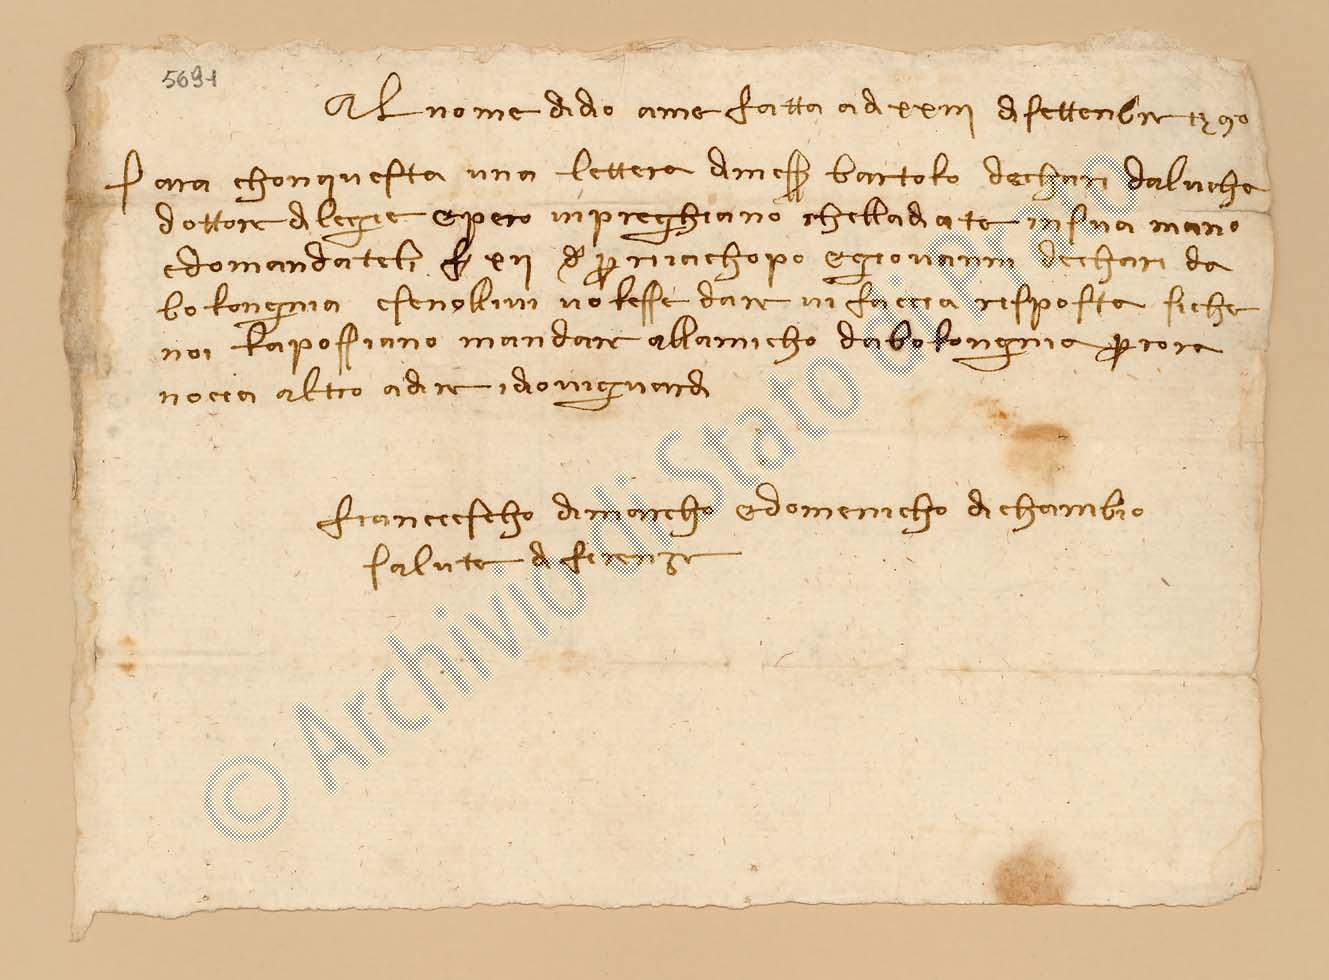 5691
Al nome di dio ame fatta a di xxiii di settenbre 1390
Sara chonquesta una lettera di mess bartolo dechari daluche
dottore di legie e pero vi preghiano chella diate in sua mano
e domandateli f xii p iachopo e giovanni dechari da
bolongnia e se nollivi volesse dare vi faccia risposta siche
noi la possiano mandare allamicho da bolongnia p ora
nocia altro a dire idio vi guardi
franciescho di marcho e domenicho di chambio
salute di firenze
© Archivio di Stato di Prato